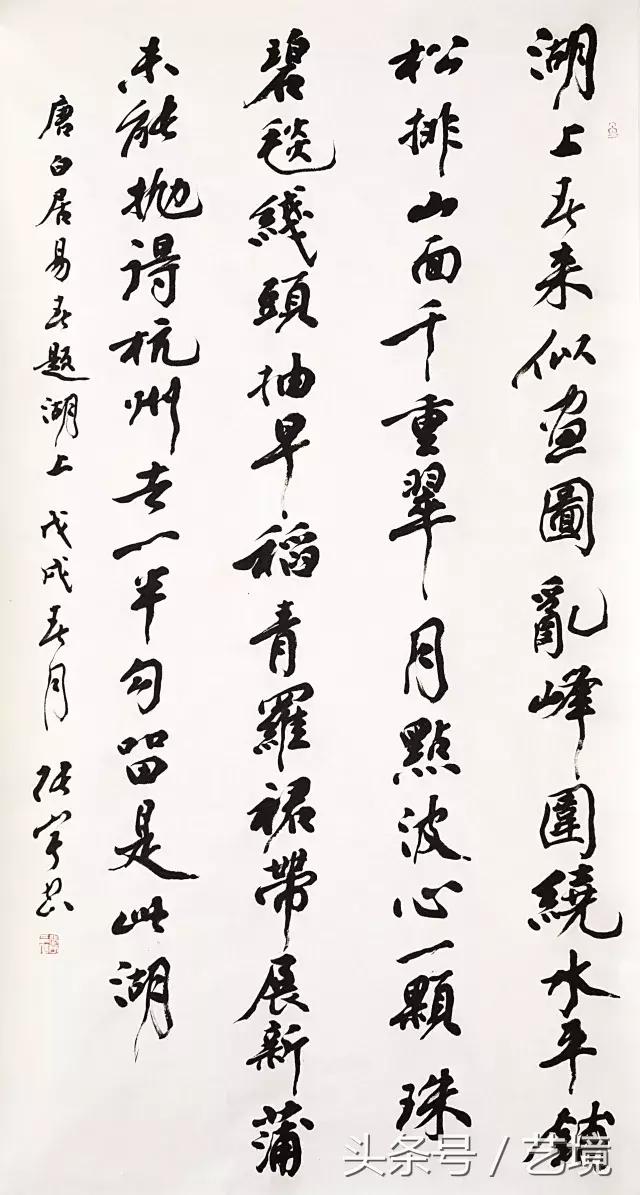 湖上春来似畫圖亂峰圍繞水平鋪
松排山面千重翠月點波心一顆珠
碧毯綫頭抽早稻青羅裙帶展新蒲
未能抛得杭州去一半勾留是此湖
唐白居易春題湖上 戊戌春月 張
头条号 / 艺境